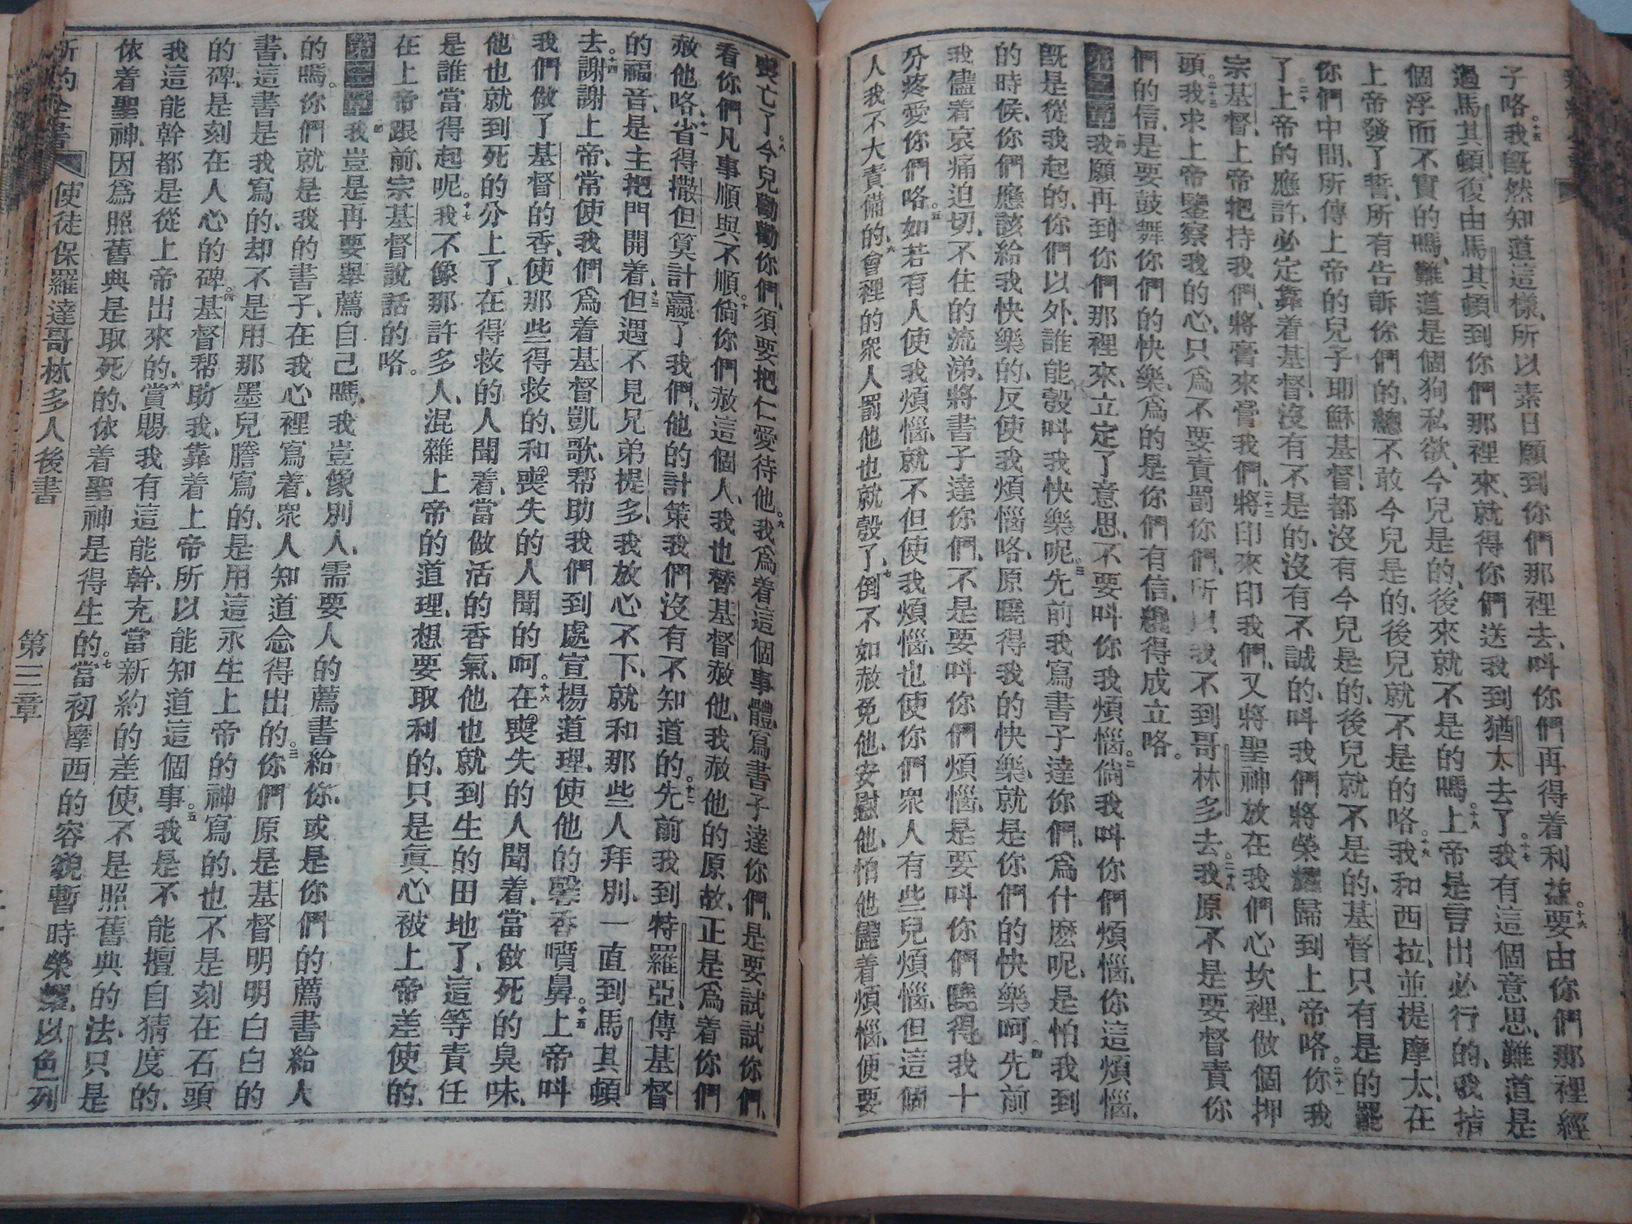 子咯、十五我旣然知道這樣、所以素日願到你們那裡去、叫你們再得着利益、十六要由你們那裡經
過馬其頓、復由馬其頓到你們那裡來、就得你們送我到猶太去了、十七我有這個意思、難道是
個浮而不實的嗎、難道是個狗私欲、今兒是的、後來就不是的嗎、十八上帝是言出必行的、我指
上帝發了誓、所有告訴你們的、總不敢今兒是的、後兒就不是的咯、十九我和西拉、並提摩太、在
你們中間、所傳上帝的兒子耶穌基督、都沒有今兒是的、後兒就不是的、基督只有是的罷
了、二十上帝的應許、必定靠着基督、沒有不是的、沒有不誠的、叫我們將榮耀歸到上帝咯、二十一你我
宗基督、上帝把持我們、將膏來膏我們、二十二將印來印我們、又將聖神放在我們心坎裡、做個押
頭、二十三我求上帝鑒察我的心、只爲不要責罰你們、所以我不到哥林多去、二十四我原不是要督責你
們的信、是要鼓舞你們的快樂、爲的是你們有信、纔得成立咯。
第二章 一我願再到你們那裡來、立定了意思、不要叫你我煩惱、二倘我叫你們煩惱、你這煩惱、
旣是從我起的、你們以外、誰能彀叫我快樂呢、三先前我寫書子達你們、爲什麽呢、是怕我到
的時候、你們應該給我快樂的、反使我煩惱咯、原曉得我的快樂、就是你們的快樂呵、四先前
我儘着哀痛迫切、不住的流涕、將書子達你們、不是要叫你們煩惱、是要叫你們曉得、我十
分疼愛你們咯、五如若有人使我煩惱、就不但使我煩惱、也使你們衆人有些兒煩惱、但這個
人我不大責備的、六會裡的衆人罰他也就彀了、七倒不如赦免他、安慰他、怕他儘着煩惱、便要
喪亡了、八今兒勸勸你們、須要把仁愛待他、九我爲着這個事體、寫書子達你們、是要試試你們、
看你們凡事順與不順、十倘你們赦這個人、我也替基督赦他、我赦他的原故、正是爲着你們
赦他咯、十一省得撒但筭計贏了我們、他的計策我們沒有不知道的、十二先前我到特羅亞、傳基督
的福音、是主把門開着、十三但遇不見兄弟提多、我放心不下、就和那些人拜別、一直到馬其頓
去、十四謝謝上帝、常使我們爲着基督凱歌、帮助我們到處宣揚道理、使他的馨香噴鼻、十五上帝叫
我們做了基督的香、使那些得救的、和喪失的人聞的呵、十六在喪失的人聞着、當做死的臭味、
他也就到死的分上了、在得救的人聞着、當做活的香氣、他也就到生的田地了、這等責任
是誰當得起呢、十七我不像那許多人、混雜上帝的道理、想要取利的、只是眞心被上帝差使的、
在上帝跟前、宗基督說話的咯。
第三章 一我豈是再要舉薦自己嗎、我豈像別人、需要人的薦書給你、或是你們的薦書給人
的嗎、二你們就是我的書子、在我心裡寫着、衆人知道念得出的、三你們原是基督明明白白的
書、這書是我寫的、却不是用那墨兒謄寫的、是用這永生上帝的神寫的、也不是刻在石頭
的碑、是刻在人心的碑、四基督帮助我、靠着上帝、所以能知道這個事、五我是不能擅自猜度的、
我這能幹、都是從上帝出來的、六賞賜我有這能幹、充當新約的差使、不是照舊典的法、只是
依着聖神、因爲照舊典是取死的、依着聖神是得生的、七當初摩西的容貌、暫時榮耀、以色列
新約全書 使徒保羅達哥林多人後書 第三章